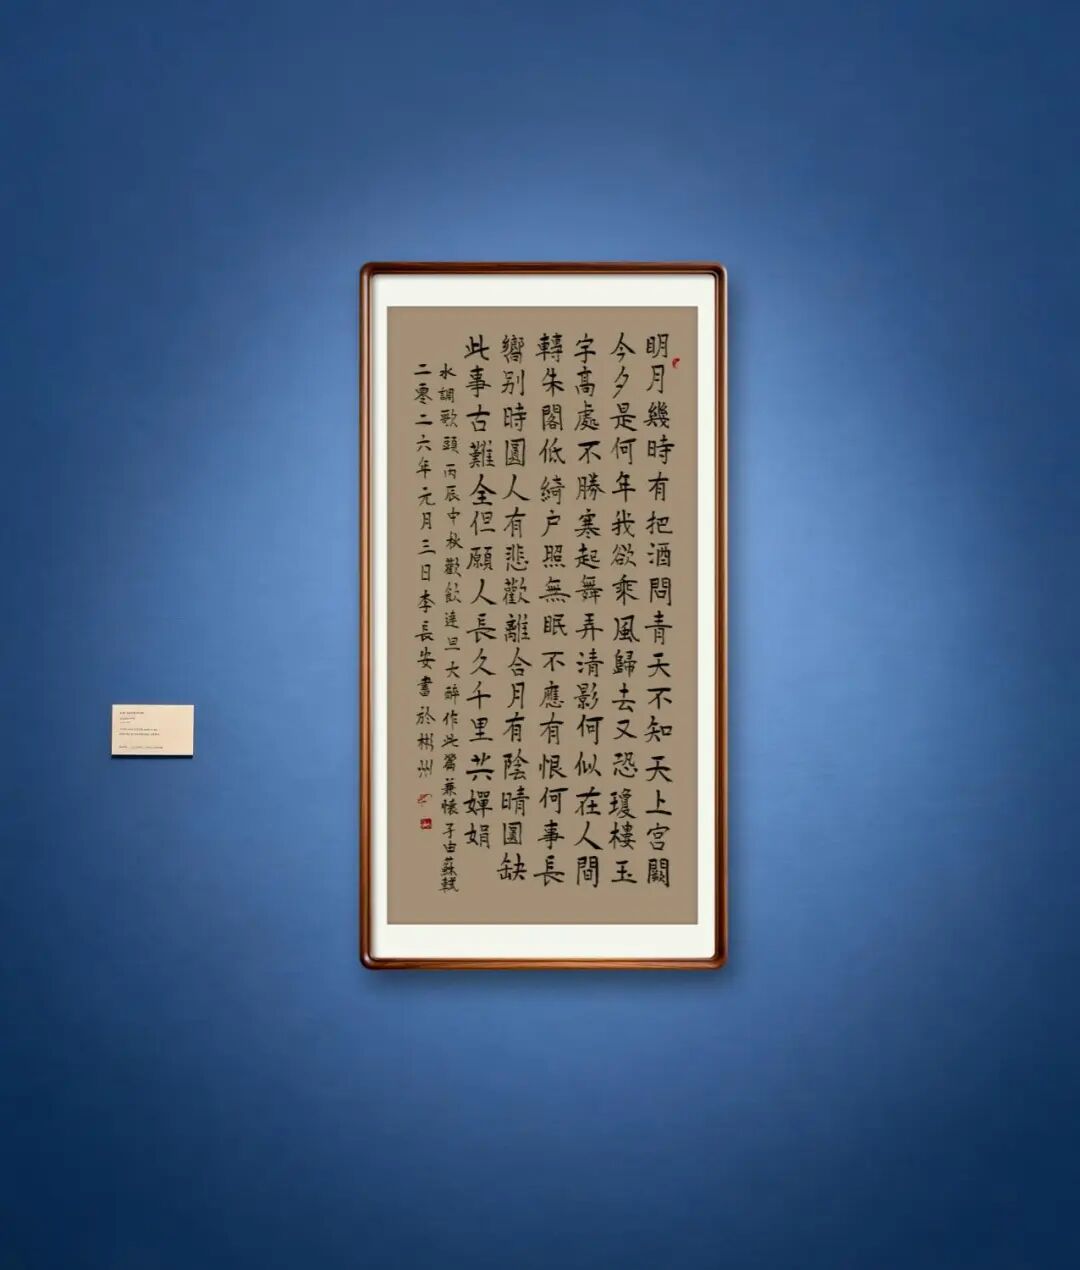 明月幾時有把酒問青天不知天上宮闕
今夕是何年我欲乘風歸去又恐瓊樓玉
字高處不勝寒起舞弄清影何似在人間
轉朱閣低綺户照無眠不應有恨何事長
嚮别時圓人有悲歡離合月有陰晴圓缺
此事古難全但願人長久千里共嬋娟
水調歌頭丙辰中秋歡飲達旦大醉作此篇兼懷子由蘇軾
二零二六年元月三日李長安書於彬州